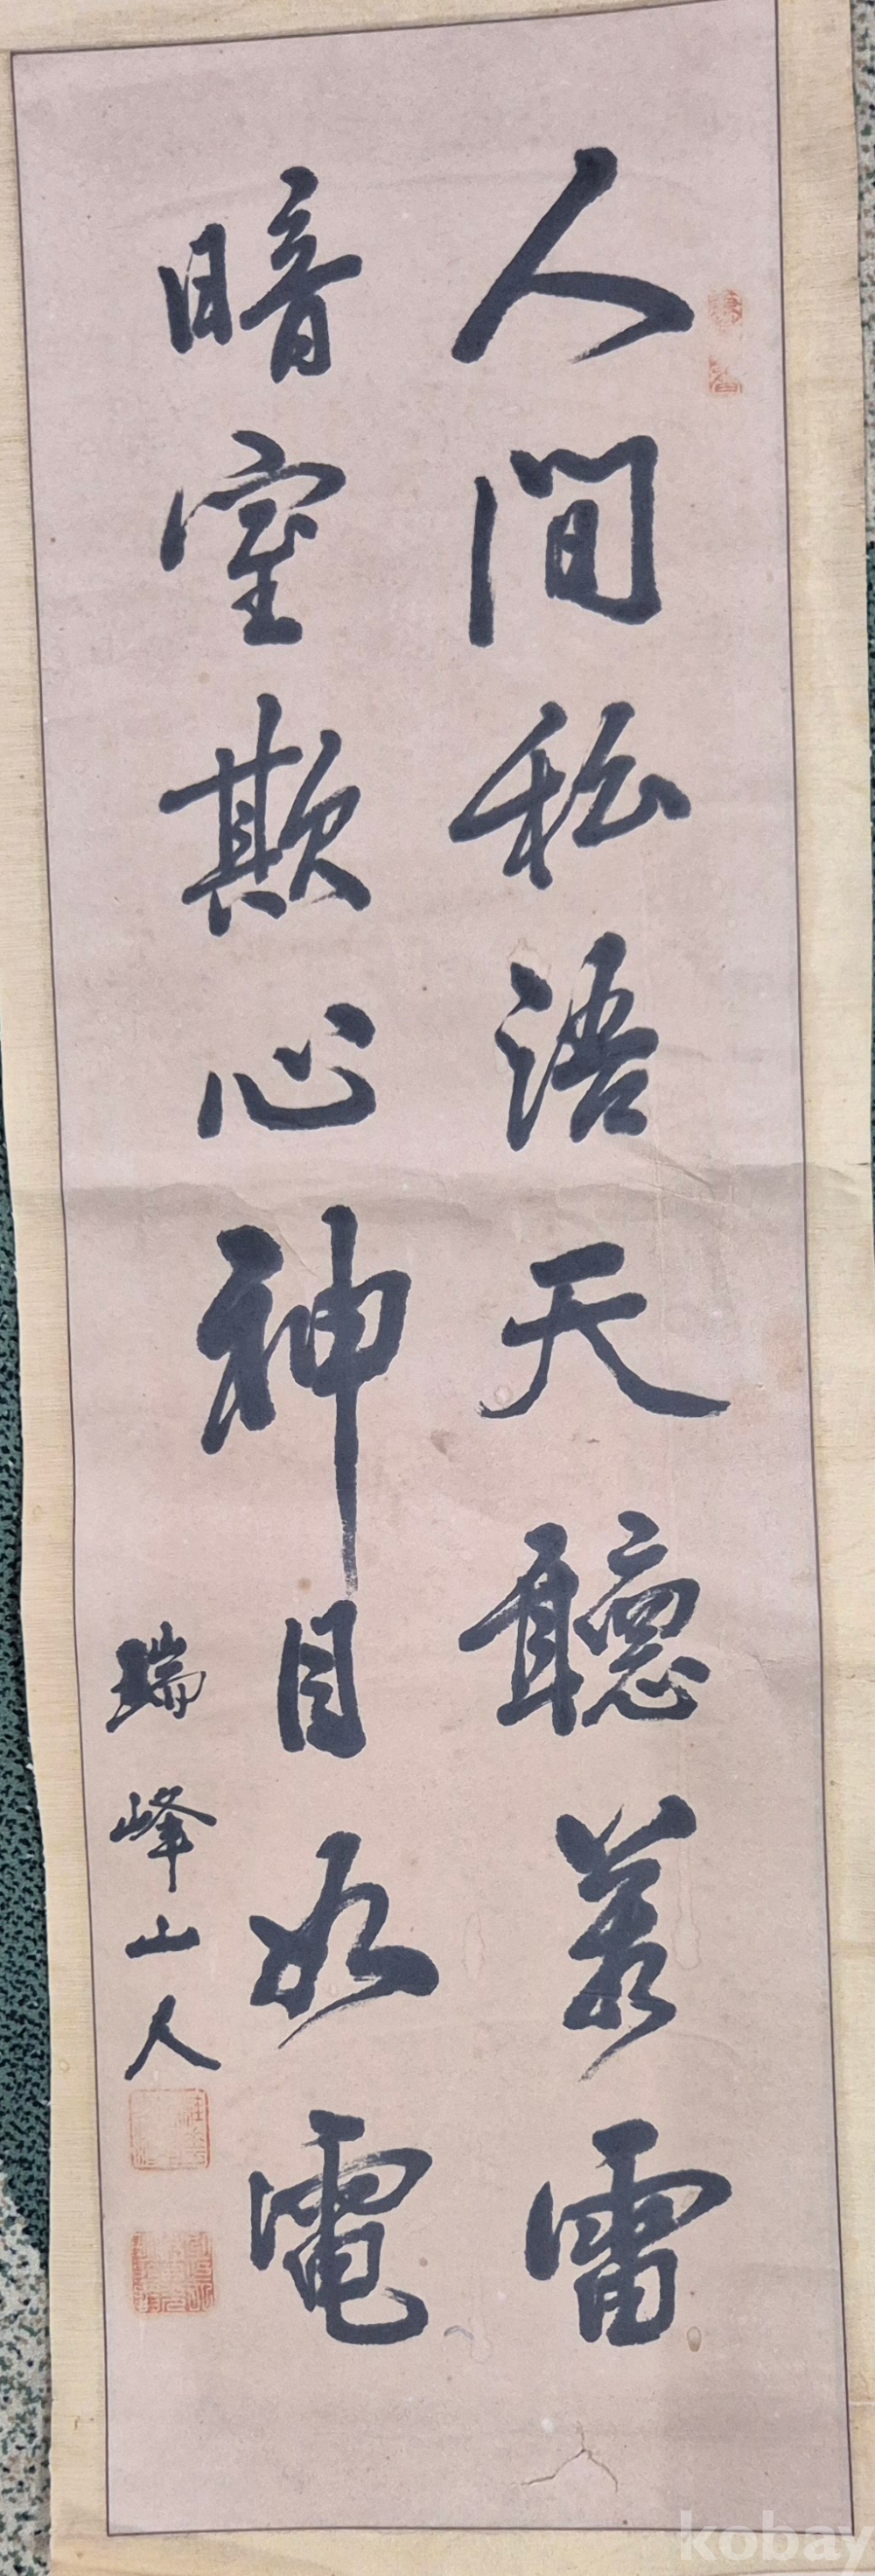 人間私語天聽若雷
暗室欺心神目如電
瑞峰山人
kobay